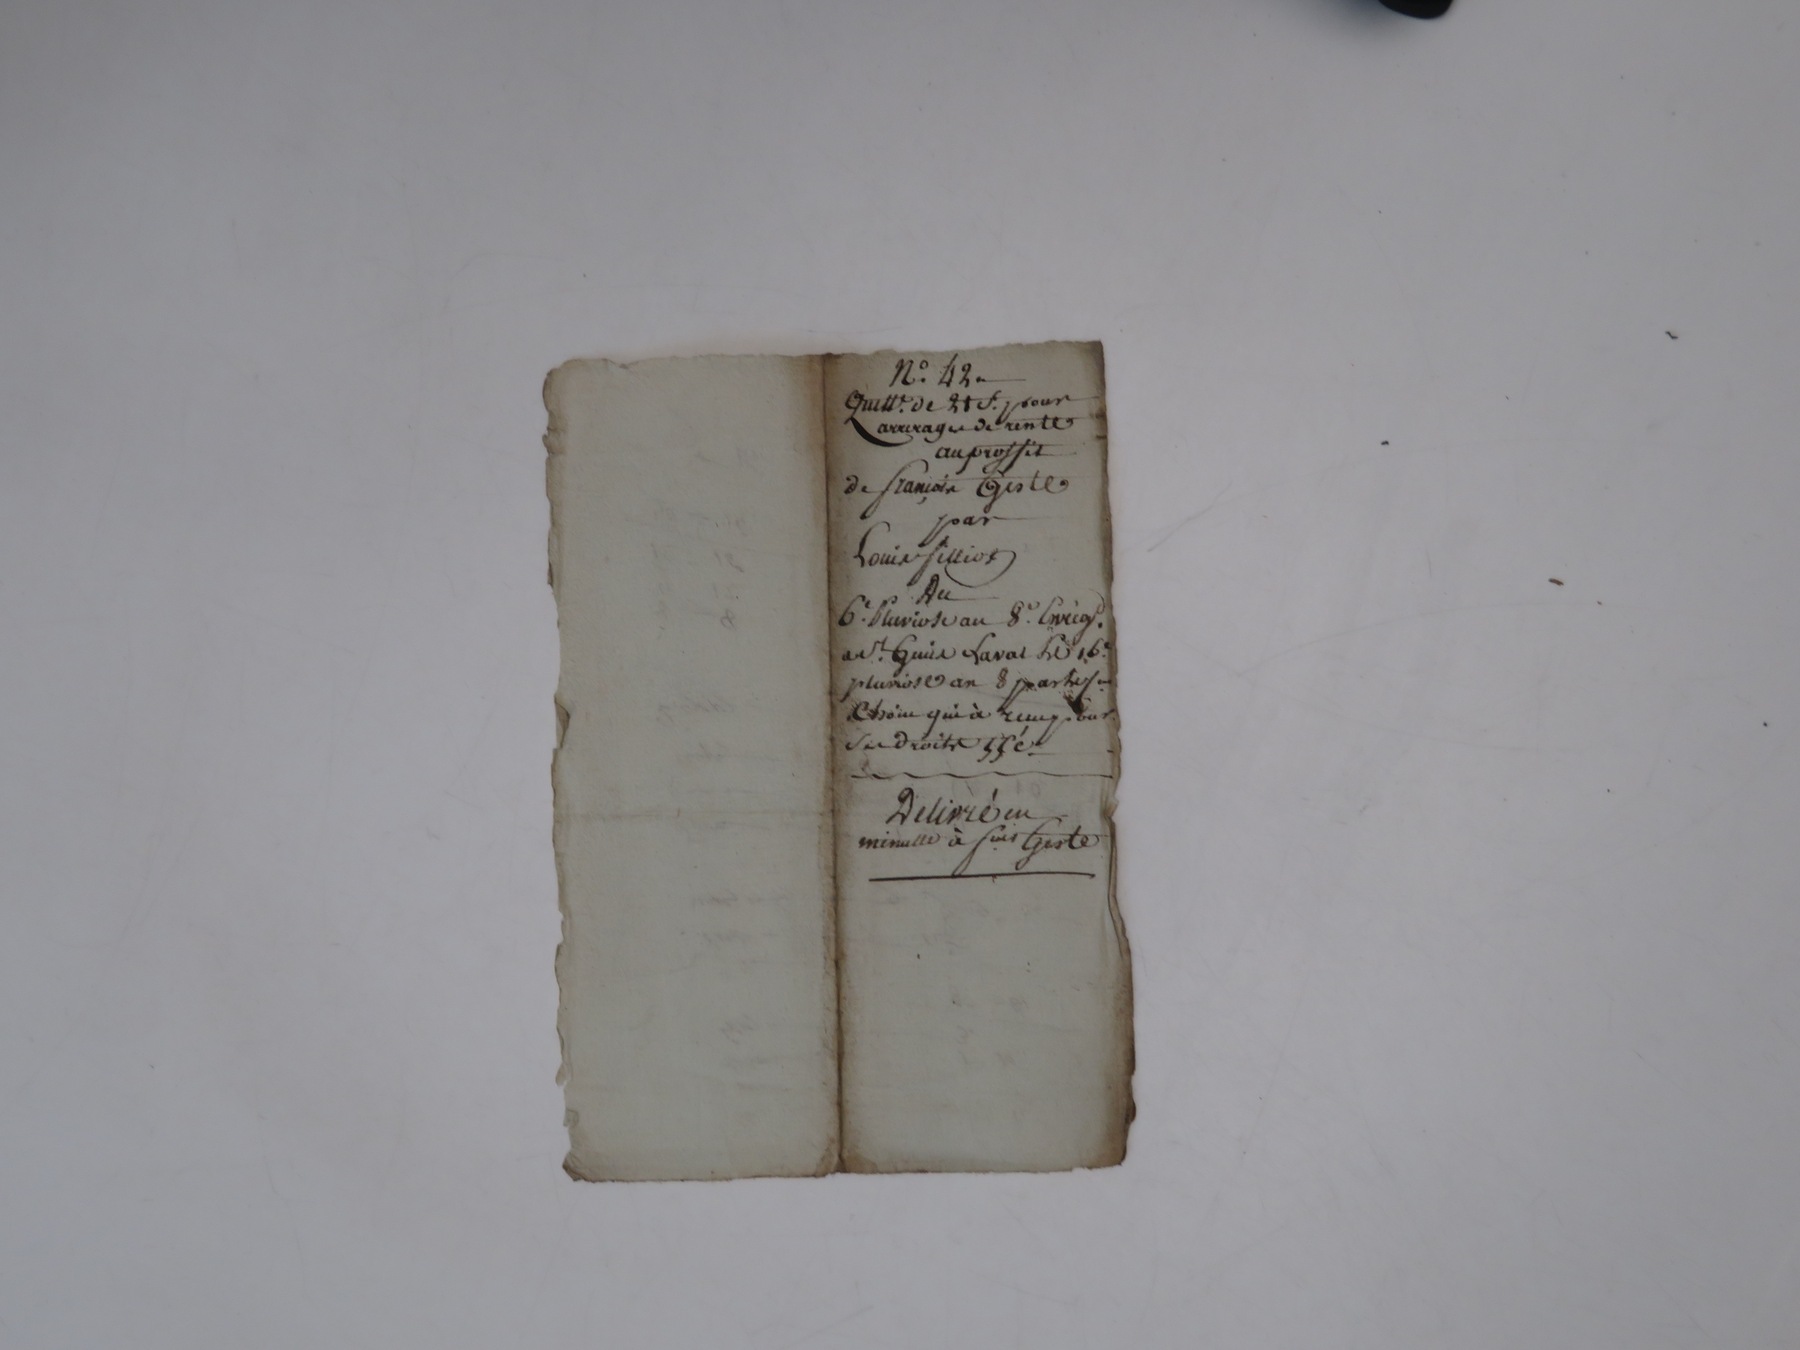 N.º 42
Quitt.ce de 21 f. pour
arrerages de rente
au proffit
de françois Geste
par
Louis filliot
Du
6.e Pluviose an 8.e Enreg.
a St. Genis Laval Le 16.e
pluviose an 8 par
qui à reçu pour
Ses Droits 55 c.
Delivré en
minutte à Geste